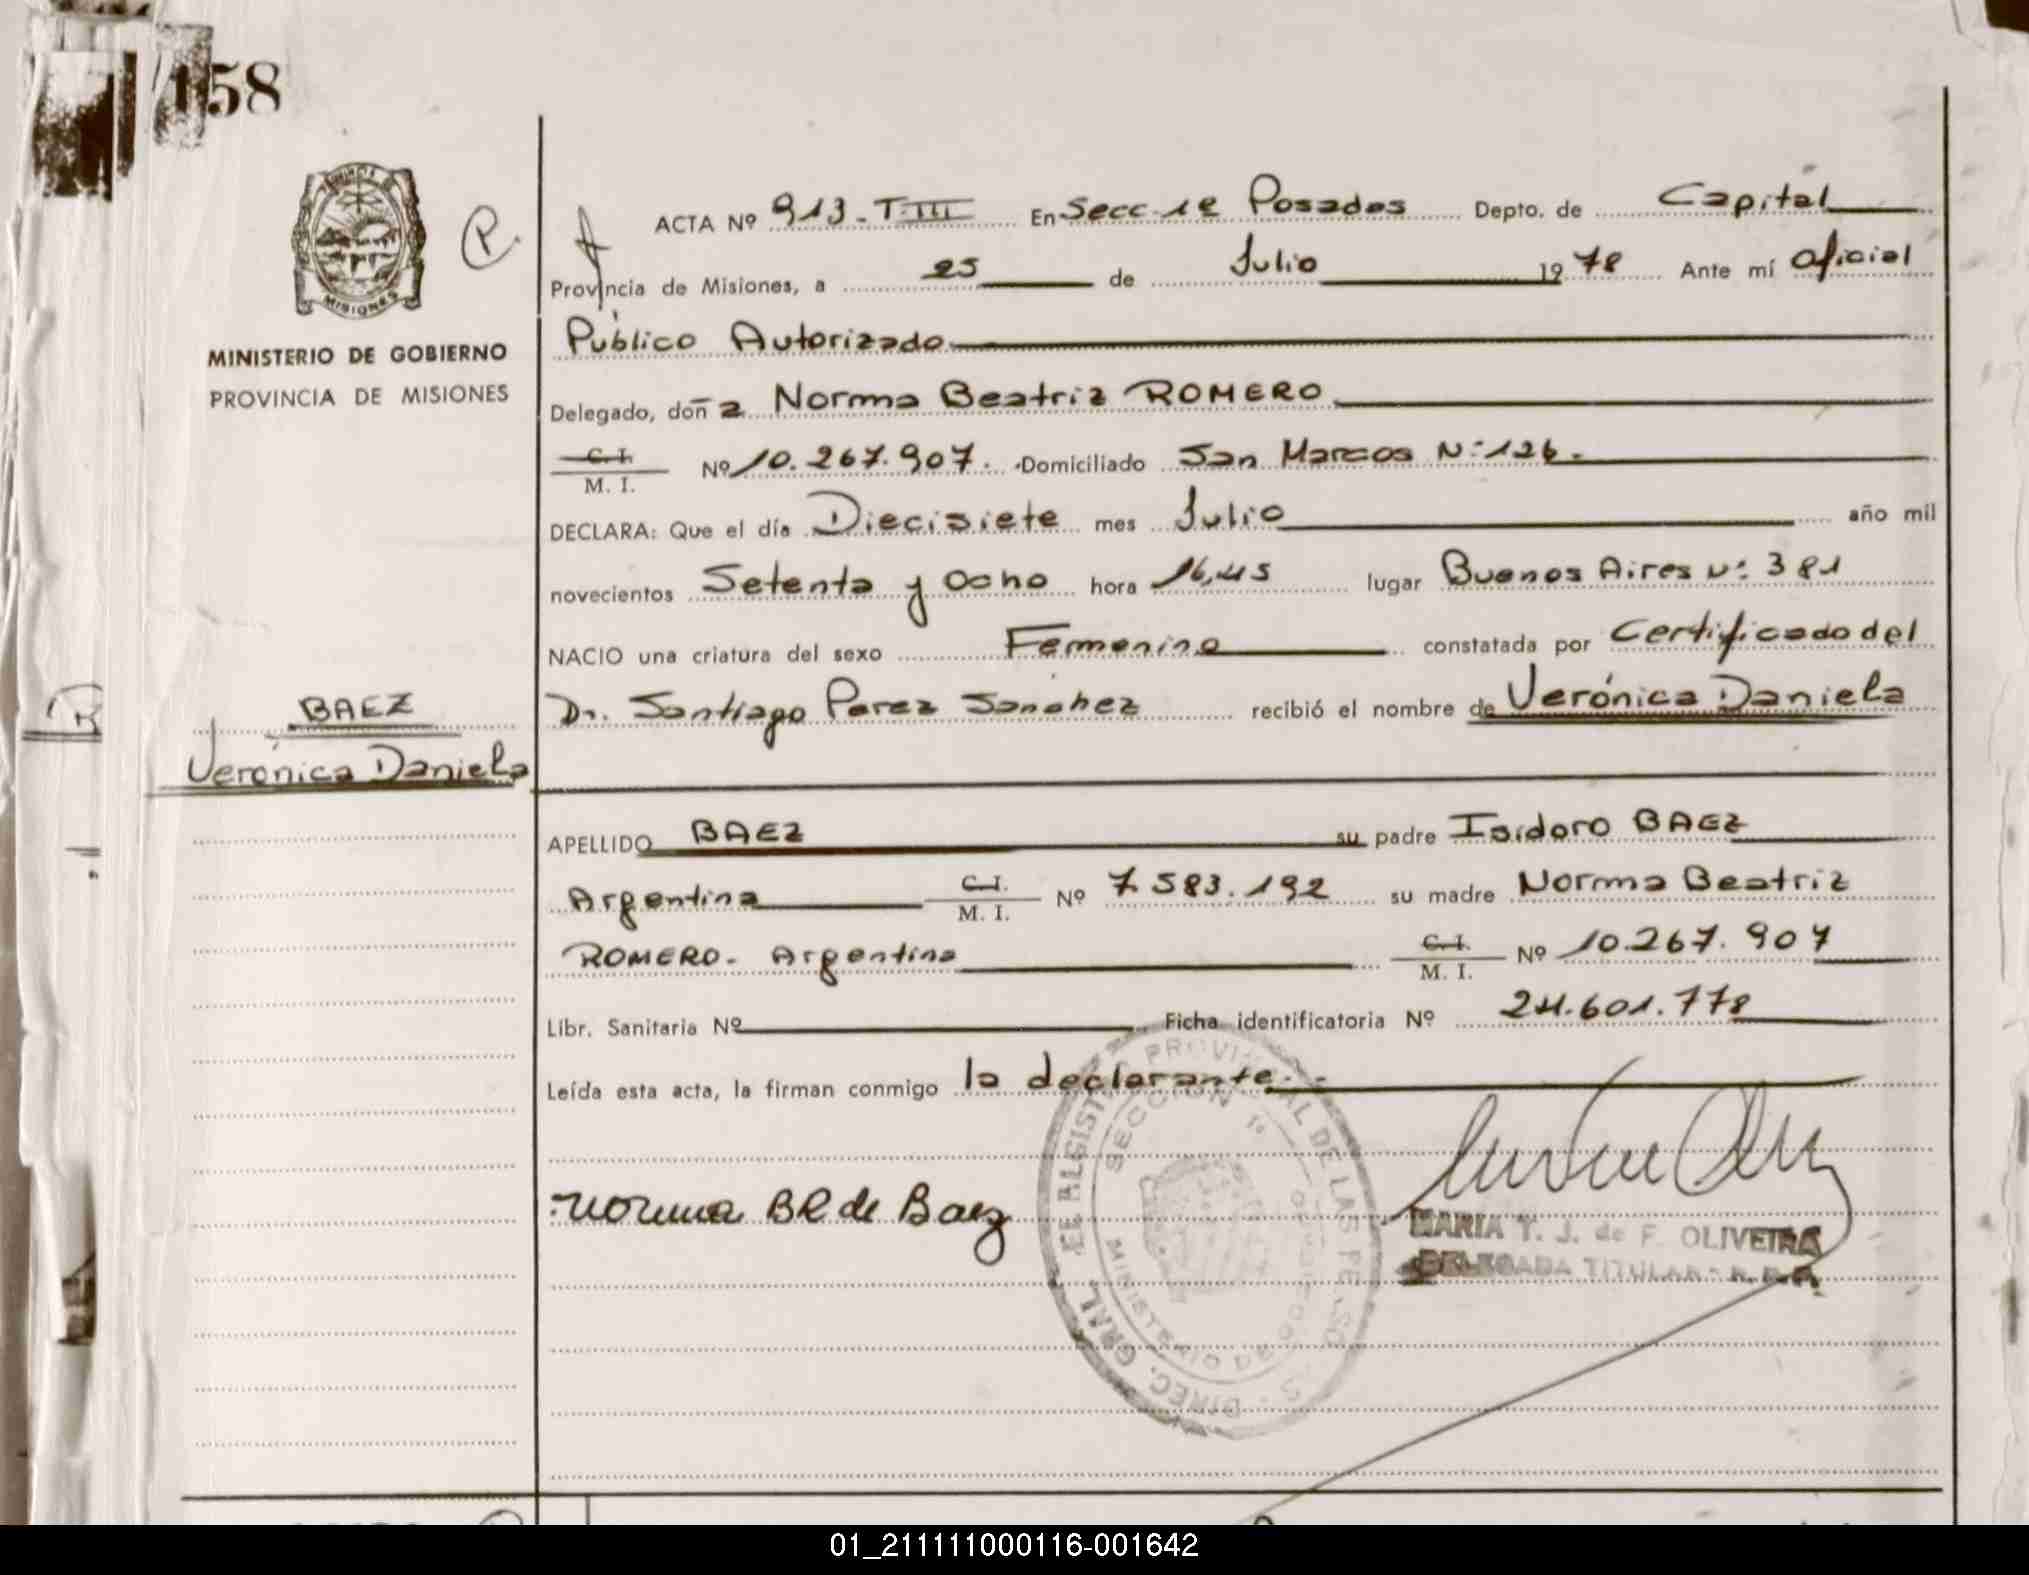 158
MISIONES
MINISTERIO DE GOBIERNO
PROVINCIA DE MISIONES
BAEZ
Verónica Daniela
ACTA Nº 913-T-III En Secc-1ª Posadas Depto. de Capital
Provincia de Misiones, a 25 de Julio 1978 Ante mí Oficial
Público Autorizado
Delegado, doña Norma Beatriz ROMERO
C. I. / M. I. Nº 10.267.907. Domiciliado San Marcos Nº 126.
DECLARA: Que el día Diecisiete mes Julio año mil
novecientos Setenta y Ocho hora 16,45 lugar Buenos Aires Nº 381
NACIO una criatura del sexo Femenino constatada por Certificado del
Dr. Santiago Perez Sanchez recibió el nombre de Verónica Daniela
APELLIDO BAEZ su padre Isidoro BAEZ
Argentina C. I. / M. I. Nº 7.583.192 su madre Norma Beatriz
ROMERO- Argentina C. I. / M. I. Nº 10.267.907
Libr. Sanitaria Nº Ficha identificatoria Nº 24.601.778
Leída esta acta, la firman conmigo la declarante.-
Norma BR de Baez
MARIA T. J. de F. OLIVEIRA
DELEGADA TITULAR
SECCION 1º
01_211111000116-001642